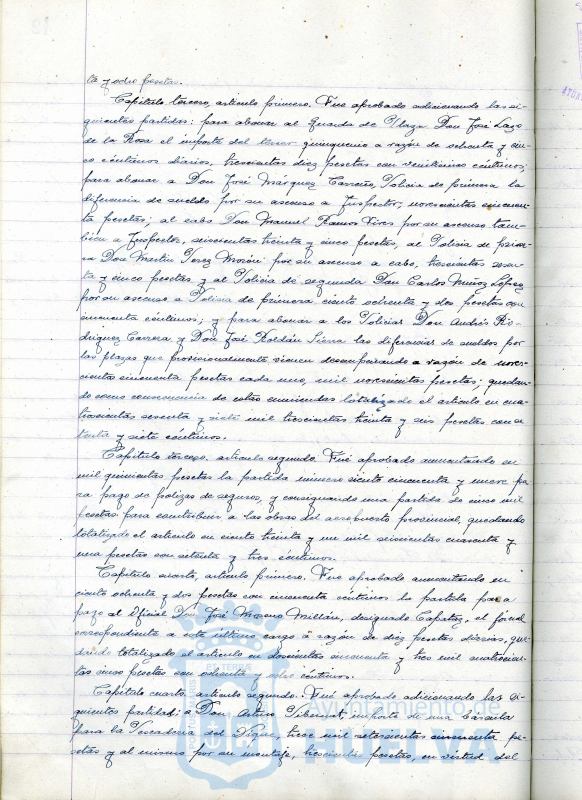 ta y ocho pesetas.
Capítulo tercero, artículo primero. Fué aprobado adicionando las si-
guientes partidas: para abonar al Guarda de Plaza Don José Lazo
de la Rosa el importe del tercer quinquenio a razón de ochenta y cin-
co céntimos diarios, trescientas diez pesetas con veinticinco céntimos;
para abonar a Don José Márquez Carreño, Policía de primera la
diferencia de sueldo por su ascenso a Inspector, novecientas cincuen-
ta pesetas; al cabo Don Manuel Ramos Vives por su ascenso tam-
bién a Inspector, seiscientas treinta y cinco pesetas, al Policía de prime-
ra Don Martín Pérez Morón por su ascenso a cabo, trescientas sesen-
ta y cinco pesetas y al Policía de segunda Don Carlos Muñoz López
por su ascenso a Policía de primera ciento ochenta y dos pesetas con
cincuenta céntimos; y para abonar a los Policías Don Andrés Ro-
dríguez Correa y Don José Roldán Sierra las diferencias de sueldos por
las plazas que provisionalmente vienen desempeñando a razón de nove-
cientas cincuenta pesetas cada uno, mil novecientas pesetas; quedan-
do como consecuencia de estas enmiendas totalizado el artículo en cua-
trocientas sesenta y siete mil trescientas treinta y seis pesetas con se-
tenta y siete céntimos.
Capítulo tercero, artículo segundo. Fué aprobado aumentando en
mil quinientas pesetas la partida número ciento cincuenta y nueve pa-
ra pago de polizas de seguros, y consignando una partida de cinco mil
pesetas para contribuir a las obras del aeropuerto provincial, quedando
totalizado el artículo en ciento treinta y un mil seiscientas cuarenta y
una pesetas con setenta y tres céntimos.
Capítulo cuarto, artículo primero. Fué aprobado aumentando en
ciento ochenta y dos pesetas con cincuenta céntimos la partida para
pago al Oficial Don José Moreno Millán, designado Capataz, el jornal
correspondiente a este último cargo a razón de diez pesetas diarias, que-
dando totalizado el artículo en doscientas cincuenta y tres mil cuatrocien-
tas cinco pesetas con ochenta y ocho céntimos.
Capítulo cuarto, artículo segundo. Fué aprobado adicionando las si-
guientes partidas; a Don Arturo importe de una báscula
para la Pescadería del Dique, trece mil setecientas cincuenta pe-
setas y al mismo por su montaje, trescientas pesetas, en virtud del
Ayuntamiento de
HUELVA